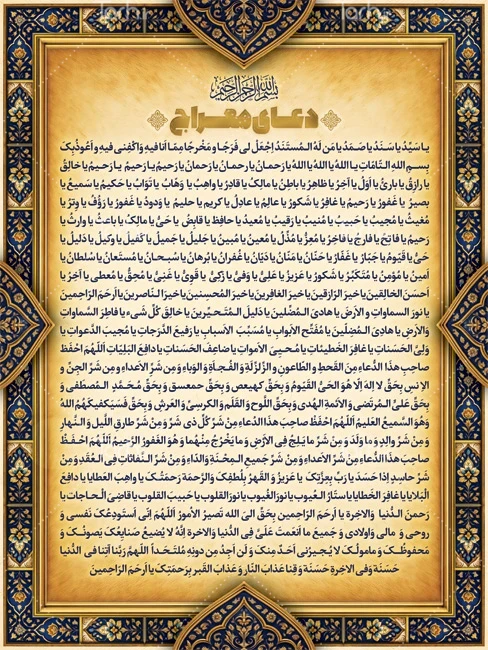 بسم الله الرحمن الرحیم
دعای معراج
یا سَیِّدُ یا سَنَدُ یا صَمَدُ یا مَن لَهُ المُستَنَدُ اِجعَل لی فَرَجًا وَ مَخرَجًا مِمّا اَنا فیهِ وَ اکفِنی فیهِ وَ اَعوذُ بِکَ
بِسمِ اللهِ التّامّاتِ یا اَللهُ یا اَللهُ یا اَللهُ یا رَحمانُ یا رَحمانُ یا رَحمانُ یا رَحیمُ یا رَحیمُ یا رَحیمُ یا خالِقُ
یا رازِقُ یا بارِئُ یا اَوَّلُ یا آخِرُ یا ظاهِرُ یا باطِنُ یا مالِکُ یا قادِرُ یا واهِبُ یا وَهّابُ یا تَوّابُ یا حَکیمُ یا سَمیعُ یا
بَصیرُ یا غَفورُ یا رَحیمُ یا غافِرُ یا شَکورُ یا عالِمُ یا عادِلُ یا کَریمُ یا حَلیمُ یا وَدودُ یا غَفورُ یا رَؤُفُ یا وِترُ یا
مُغیثُ یا مُجیبُ یا حَبیبُ یا مُنیبُ یا رَقیبُ یا مُعیدُ یا حافِظُ یا قابِضُ یا حَیُّ یا مالِکُ یا باعِثُ یا وارِثُ یا
رَحیمُ یا فاتِحُ یا فارِجُ یا فاخِرُ یا مُعِزُّ یا مُذِلُّ یا مُعینُ یا مُبینُ یا جَلیلُ یا جَمیلُ یا کَفیلُ یا وَکیلُ یا دَلیلُ یا
حَیُّ یا قَیّومُ یا جَبّارُ یا غَفّارُ یا حَنّانُ یا مَنّانُ یا دَیّانُ یا غُفرانُ یا بُرهانُ یا سُبحانُ یا مُستَعانُ یا سُلطانُ یا
اَمینُ یا مُؤمِنُ یا مُتَکَبِّرُ یا شَکورُ یا عَزیزُ یا عَلیُّ یا وَفیُّ یا زَکیُّ یا قَویُّ یا غَنیُّ یا مُحِقُّ یا مُعطی یا آخِرُ یا
اَحسَنَ الخالِقینَ یا خَیرَ الرّازِقینَ یا خَیرَ الغافِرینَ یا خَیرَ المُحسِنینَ یا خَیرَ النّاصِرینَ یا اَرحَمَ الرّاحِمینَ
یا نورَ السَّماواتِ وَ الاَرضِ یا هادِیَ المُضِلّینَ یا دَلیلَ المُتَحَیِّرینَ یا خالِقَ کُلِّ شَیءٍ یا فاطِرَ السَّماواتِ
وَ الاَرضِ یا هادِیَ المُضِلّینَ یا مُفَتِّحَ الاَبوابِ یا مُسَبِّبَ الاَسبابِ یا رَفیعَ الدَّرَجاتِ یا مُجیبَ الدَّعواتِ یا
وَلیَّ الحَسَناتِ یا غافِرَ الخَطیئاتِ یا مُحیِیَ الاَمواتِ یا ضاعِفَ الحَسَناتِ یا دافِعَ البَلِیّاتِ اَللّهُمَّ احفَظ
صاحِبَ هذَا الدُّعاءِ مِنَ القَحطِ وَ الطّاعونِ وَ الزَّلزَلَةِ وَ الفُجأةِ وَ الوَباءِ وَ مِن شَرِّ الاَعداءِ وَ مِن شَرِّ الجِنِّ وَ
الاِنسِ بِحَقِّ لا اِلهَ اِلّا هُوَ الحَیُّ القَیّومُ وَ بِحَقِّ کهیعص وَ بِحَقِّ حمعسق وَ بِحَقِّ مُحَمَّدٍ المُصطَفی وَ
بِحَقِّ عَلیٍّ المُرتَضی وَ الاَئِمَّةِ الهُدی وَ بِحَقِّ اللَّوحِ وَ القَلَمِ وَ الکُرسیِّ وَ العَرشِ وَ بِحَقِّ فَسَیَکفیکَهُمُ اللهُ
وَ هُوَ السَّمیعُ العَلیمُ اَللّهُمَّ احفَظ صاحِبَ هذَا الدُّعاءِ مِن شَرِّ کُلِّ ذی شَرٍّ وَ مِن شَرِّ طارِقِ اللَّیلِ وَ النَّهارِ
وَ مِن شَرِّ والِدٍ وَ ما وَلَدَ وَ مِن شَرِّ ما یَلِجُ فِی الاَرضِ وَ ما یَخرُجُ مِنها وَ هُوَ الغَفورُ الرَّحیمُ اَللّهُمَّ احفَظ
صاحِبَ هذَا الدُّعاءِ مِن شَرِّ جَمیعِ المِحنَةِ وَ الدّاءِ وَ مِن شَرِّ النَّفّاثاتِ فِی العُقَدِ وَ مِن
شَرِّ حاسِدٍ اِذا حَسَدَ یا رَبِّ بِعِزَّتِکَ یا عَزیزُ وَ القَهرِ بِلُطفِکَ وَ الرَّحمَةِ رَحمَتُکَ یا واهِبَ العَطایا یا دافِعَ
البَلایا یا غافِرَ الخَطایا یا سَتّارَ العُیوبِ یا نورَ الغُیوبِ یا نورَ القُلوبِ یا حَبیبَ القُلوبِ یا قاضِیَ الحاجاتِ یا
رَحمنَ الدُّنیا وَ الاخِرَةِ یا اَرحَمَ الرّاحِمینَ بِحَقِّ اِلَی اللهِ تَصیرُ الاُمورُ اَللّهُمَّ اِنّی اَستَودِعُکَ نَفسی وَ
روحی وَ مالی وَ اَولادی وَ جَمیعَ ما اَنعَمتَ عَلَیَّ فِی الدُّنیا وَ الاخِرَةِ اِنَّهُ لا یُضیعُ صَنایِعُکَ یَصونُکَ وَ
مَحفوظُکَ وَ مامولُکَ لا یُجیرُنی اَحَدٌ مِنکَ وَ لَن اَجِدُ مِن دونِهِ مُلتَحَداً اَللّهُمَّ رَبَّنا آتِنا فِی الدُّنیا
حَسَنَةً وَ فِی الاخِرَةِ حَسَنَةً وَ قِنا عَذابَ النّارِ وَ عَذابَ القَبرِ بِرَحمَتِکَ یا اَرحَمَ الرّاحِمینَ